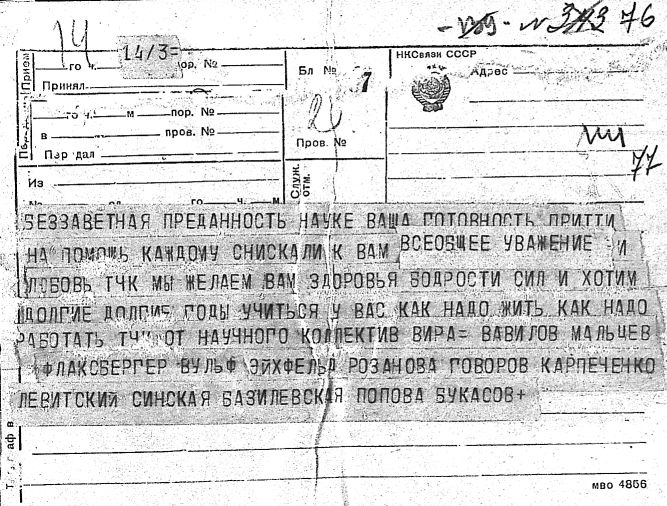 № 76
14
14/3=
НКСвязи СССР
Прием
го ч. пор. №
Бл №
7
Адрес
Принял
го ч. м пор. №
в пров. №
Пров. №
Передал
77
Из
Служ. отм.
№ го ч. м.
БЕЗЗАВЕТНАЯ ПРЕДАННОСТЬ НАУКЕ ВАША ГОТОВНОСТЬ ПРИТТИ
НА ПОМОЩЬ КАЖДОМУ СНИСКАЛИ К ВАМ ВСЕОБЩЕЕ УВАЖЕНИЕ И
ЛЮБОВЬ ТЧК МЫ ЖЕЛАЕМ ВАМ ЗДОРОВЬЯ БОДРОСТИ СИЛ И ХОТИМ
ДОЛГИЕ ДОЛГИЕ ГОДЫ УЧИТЬСЯ У ВАС КАК НАДО ЖИТЬ КАК НАДО
РАБОТАТЬ ТЧК ОТ НАУЧНОГО КОЛЛЕКТИВ ВИРА= ВАВИЛОВ МАЛЬЦЕВ
ФЛАКСБЕРГЕР ВУЛЬФ ЭЙХФЕЛЬД РОЗАНОВА ГОВОРОВ КАРПЕЧЕНКО
ЛЕВИТСКИЙ СИНСКАЯ БАЗИЛЕВСКАЯ ПОПОВА БУКАСОВ+
мво 4856